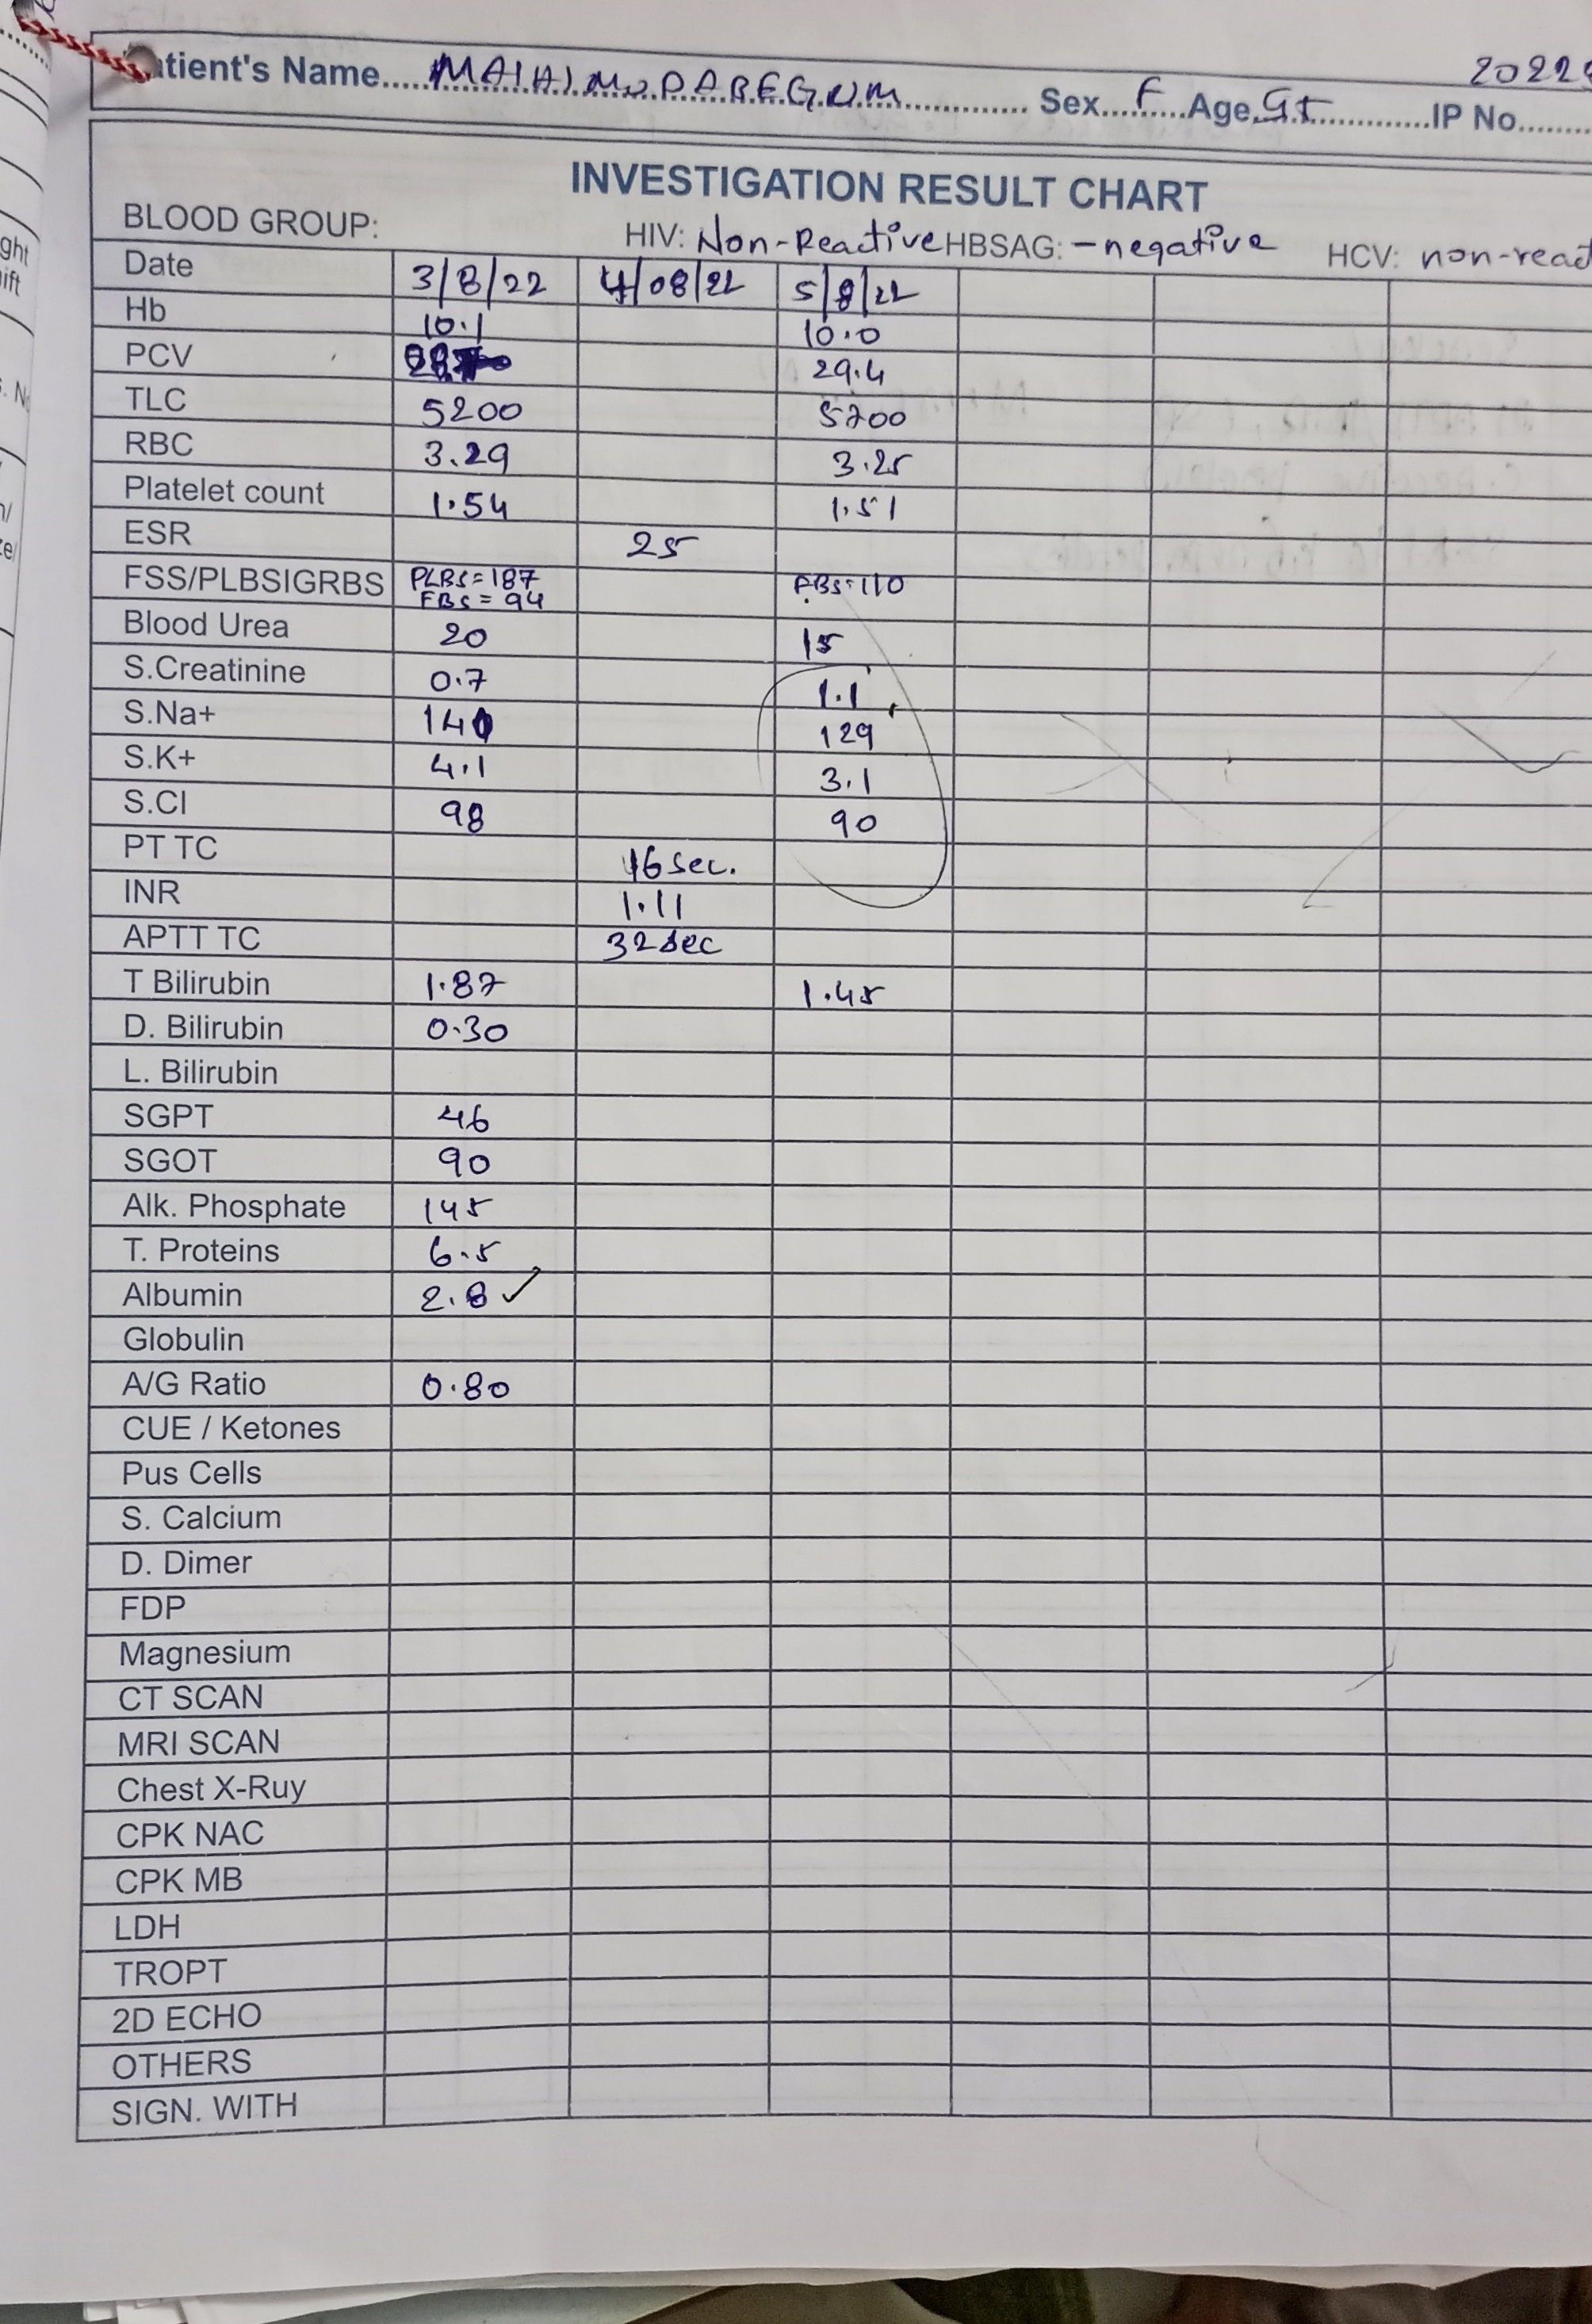 Patient's Name.... Sex....F....Age.............IP No........
INVESTIGATION RESULT CHART
BLOOD GROUP: HIV: Non-Reactive HBSAG: - negative HCV: non-react
Date 3/8/22 4/08/22 5/8/22
Hb 10.1 10.0
PCV 29.4
TLC 5200 5700
RBC 3.29 3.25
Platelet count 1.54 1.51
ESR 25
FSS/PLBSIGRBS PLBS=187 FBS=110
FBS = 94
Blood Urea 20 15
S.Creatinine 0.7 1.1
S.Na+ 129
S.K+ 4.1 3.1
S.CI 98 90
PT TC 16 sec.
INR 1.11
APTT TC 32 sec
T Bilirubin 1.87 1.45
D. Bilirubin 0.30
L. Bilirubin
SGPT 46
SGOT 90
Alk. Phosphate 145
T. Proteins 6.5
Albumin 2.8 ✓
Globulin
A/G Ratio 0.80
CUE / Ketones
Pus Cells
S. Calcium
D. Dimer
FDP
Magnesium
CT SCAN
MRI SCAN
Chest X-Ruy
CPK NAC
CPK MB
LDH
TROPT
2D ECHO
OTHERS
SIGN. WITH